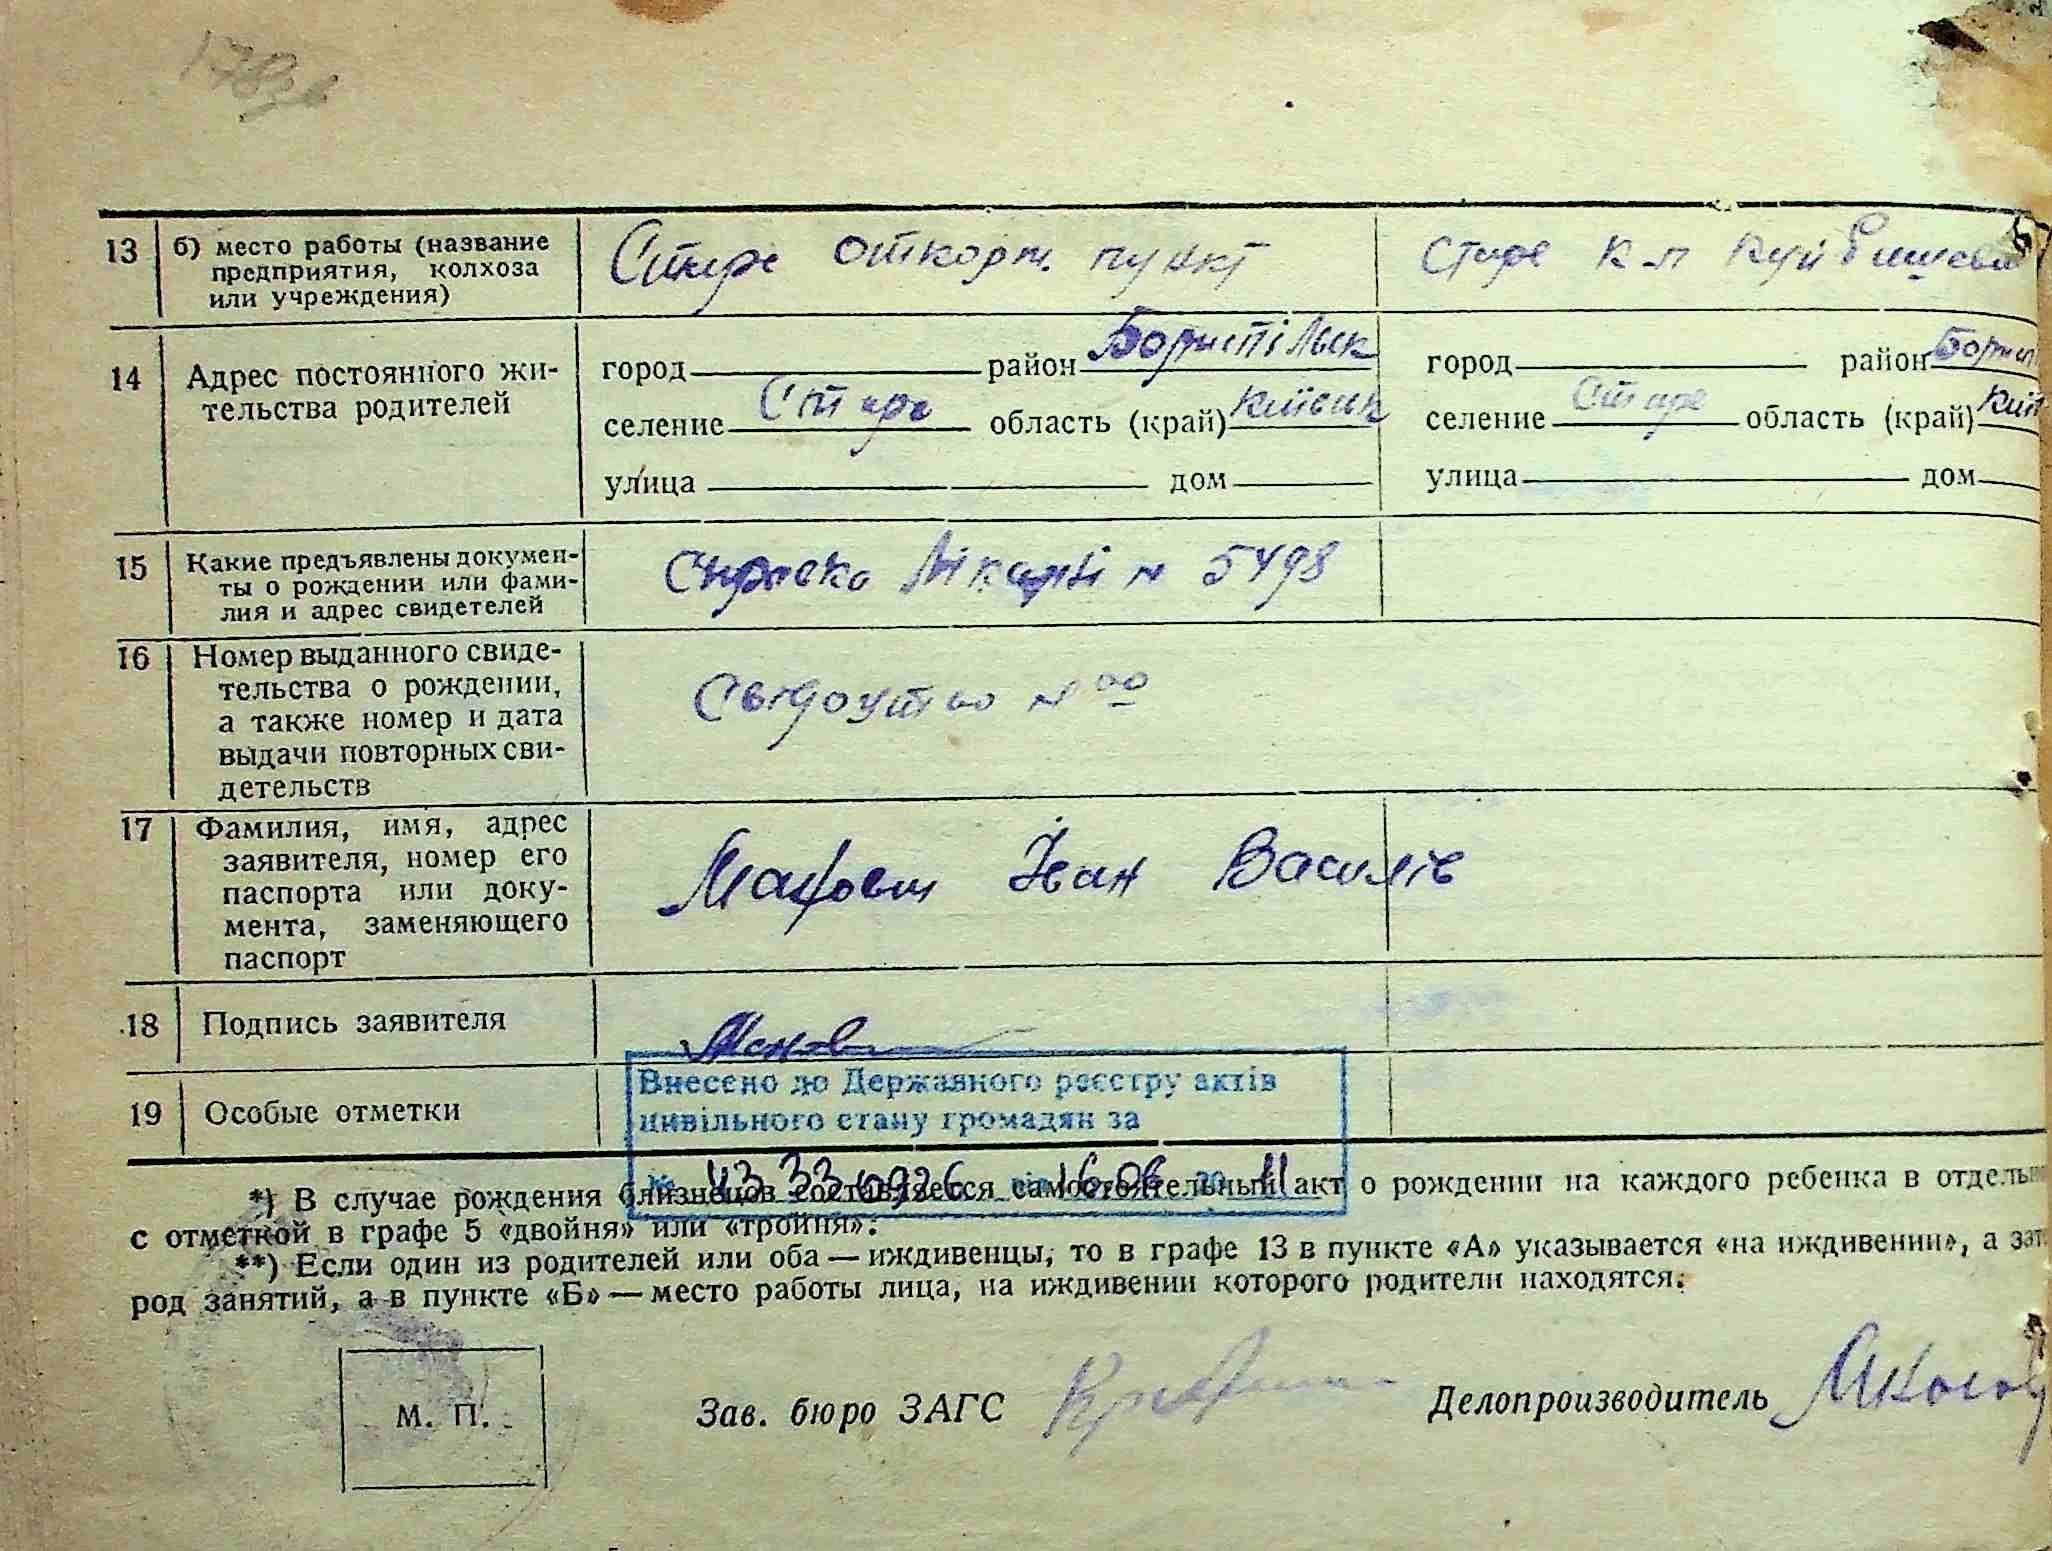 13 б) место работы (название предприятия, колхоза или учреждения) Старе откорм. пункт Старе к-п Куйбишева
14 Адрес постоянного жительства родителей
город район Бориспільськ город район Борисп
селение Старе область (край) Київськ селение Старе область (край) Київ
улица дом улица дом
15 Какие предъявлены документы о рождении или фамилия и адрес свидетелей Справка лікарні № 5498
16 Номер выданного свидетельства о рождении, а также номер и дата выдачи повторных свидетельств Свідоцтво №
17 Фамилия, имя, адрес заявителя, номер его паспорта или документа, заменяющего паспорт Іван Василів
18 Подпись заявителя
19 Особые отметки
Внесено до Державного реєстру актів
цивільного стану громадян за
№ від 16.06 20 11
*) В случае рождения близнецов составляется самостоятельный акт о рождении на каждого ребенка в отдельно
с отметкой в графе 5 «двойня» или «тройня».
**) Если один из родителей или оба — иждивенцы, то в графе 13 в пункте «А» указывается «на иждивении», а зат
род занятий, а в пункте «Б» — место работы лица, на иждивении которого родители находятся.
М. П. Зав. бюро ЗАГС Делопроизводитель